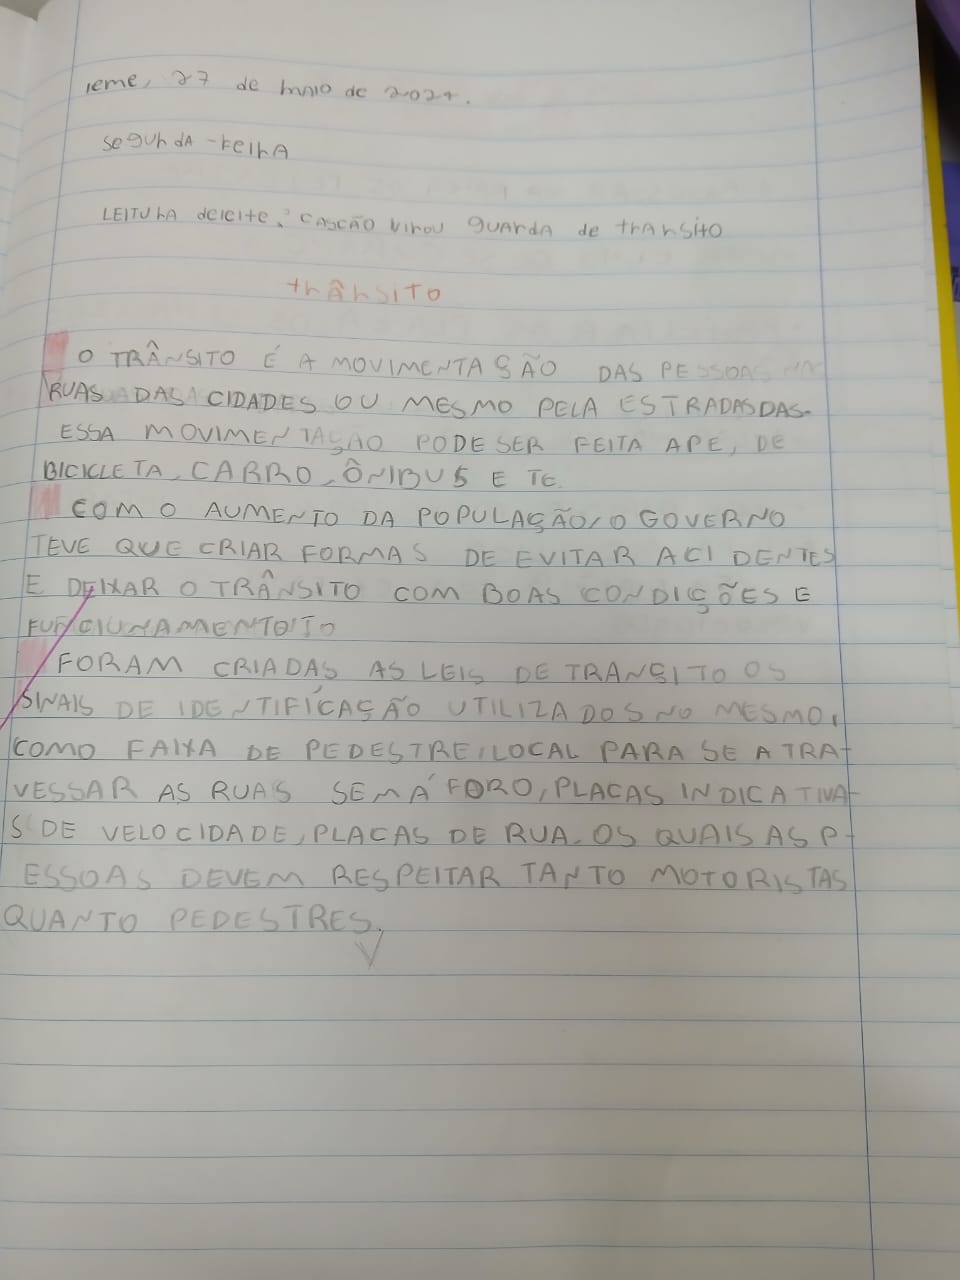 leme, 27 de maio de 2024.
segunda-feira
LEITURA deleite: CASCÃO virou guarda de transito
trânsito
O TRÂNSITO É A MOVIMENTAÇÃO DAS PESSOAS NA
RUAS DAS CIDADES OU MESMO PELA ESTRADASDAS.
ESSA MOVIMENTAÇAO PODE SER FEITA APE, DE
BICICLETA, CARRO, ÔNIBUS E TC.
COM O AUMENTO DA POPULAÇÃO, O GOVERNO
TEVE QUE CRIAR FORMAS DE EVITAR ACIDENTES
E DEIXAR O TRÂNSITO COM BOAS CONDIÇÕES E
FUNCIUNAMENTOITO
FORAM CRIADAS AS LEIS DE TRANSITO OS
SINAIS DE IDENTIFICAÇÃO UTILIZADOS NO MESMO,
COMO FAIXA DE PEDESTRE, LOCAL PARA SE A TRA-
VESSAR AS RUAS SEMÁFORO, PLACAS INDICATIVA-
S DE VELOCIDADE, PLACAS DE RUA. OS QUAIS AS P-
ESSOAS DEVEM RESPEITAR TANTO MOTORISTAS
QUANTO PEDESTRES.